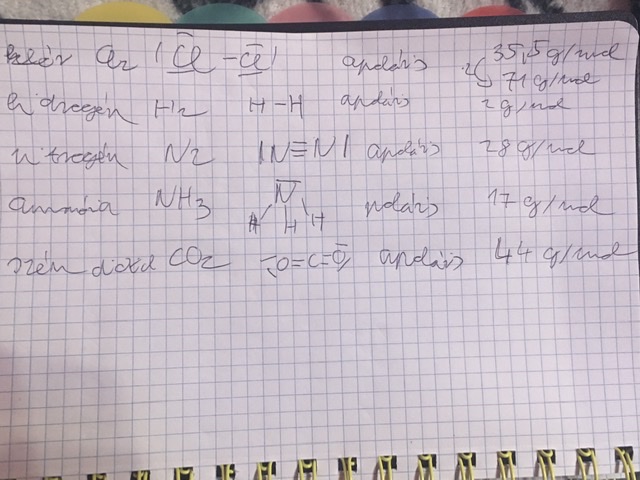 klór Cl2 |Cl-Cl| apoláris 35,5 g/mol
·2 71 g/mol
hidrogén H2 H-H apoláris 2 g/mol
nitrogén N2 |N≡N| apoláris 28 g/mol
ammónia NH3 N poláris 17 g/mol
H H H
szén dioxid CO2 O=C=O apoláris 44 g/mol